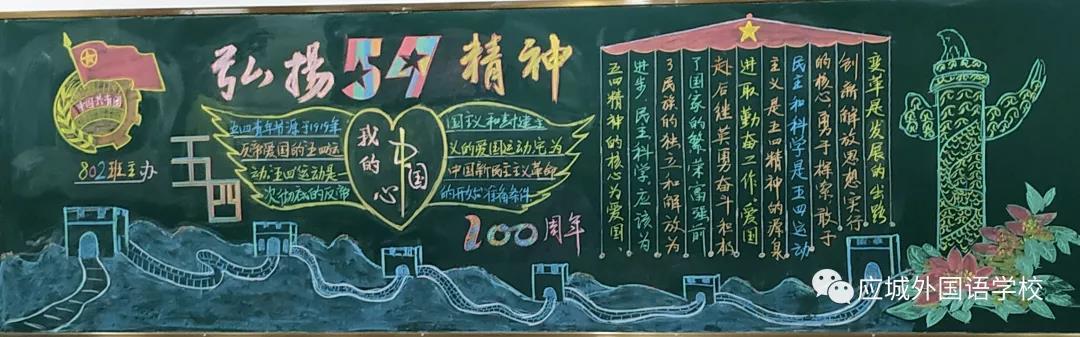 弘揚54精神
中国共青团
802班主办
五四
五四青年节源于1919年
反帝爱国的五四运
动,五四运动是一
次彻底的反帝
我的心
中国
国主义和封建主
义的爱国运动,
中国新民主主义革命
的开始准备条件
100周年
五四精神的核心为爱国
进步,民主科学,应该为
了民族的独立和解放为
了国家的繁荣富强前
赴后继英勇奋斗积极
进取勤奋工作,爱国
主义是五四精神的源泉
民主和科学是五四运动
的核心,勇于探索敢于
创新解放思想实行
变革是发展的出路
应城外国语学校